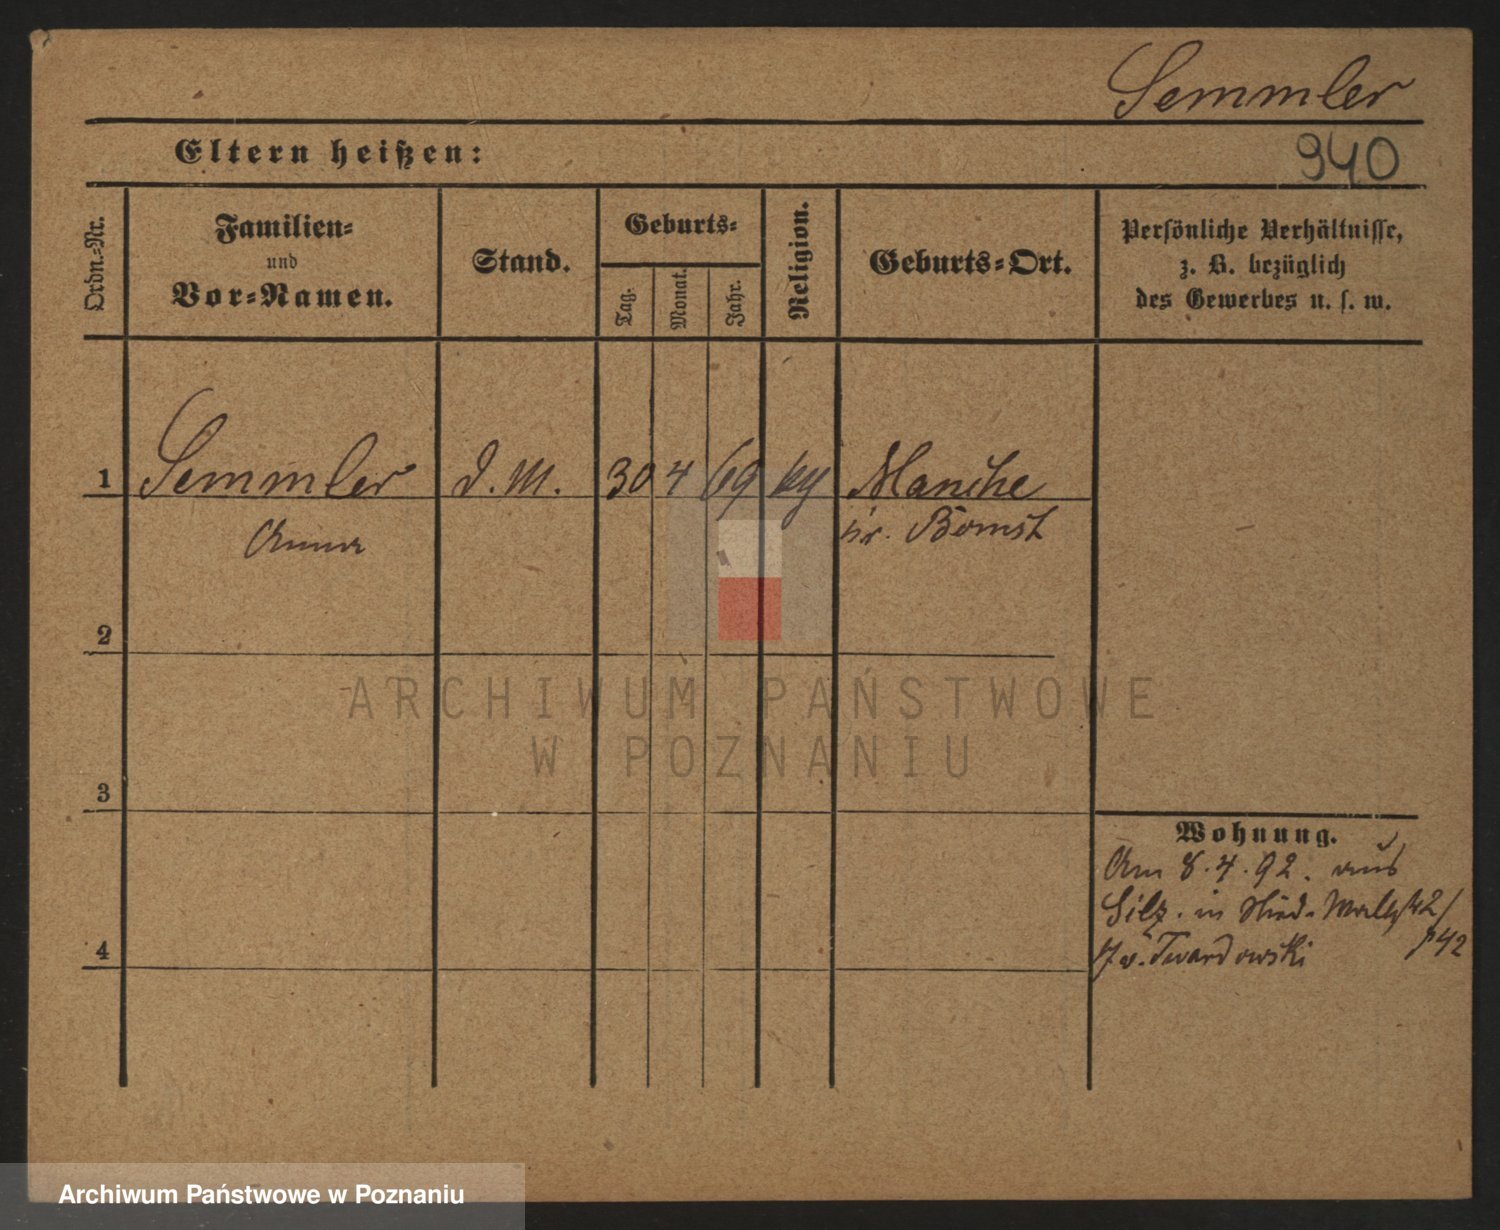 Semmler
Eltern heißen:
940
Ordn.=Nr.
Familien=
und
Vor=Namen.
Stand.
Geburts=
Tag.
Monat.
Jahr.
Religion.
Geburts=Ort.
Persönliche Verhältnisse,
z. B. bezüglich
des Gewerbes u. s. w.
1
Semmler
d. M.
30
4
69
Manche
kr. Bomst
Anna
2
ARCHIWUM PAŃSTWOWE
W POZNANIU
3
Wohnung.
Am 8.4.92. aus
in 42/
4
v. Twardowski
Archiwum Państwowe w Poznaniu